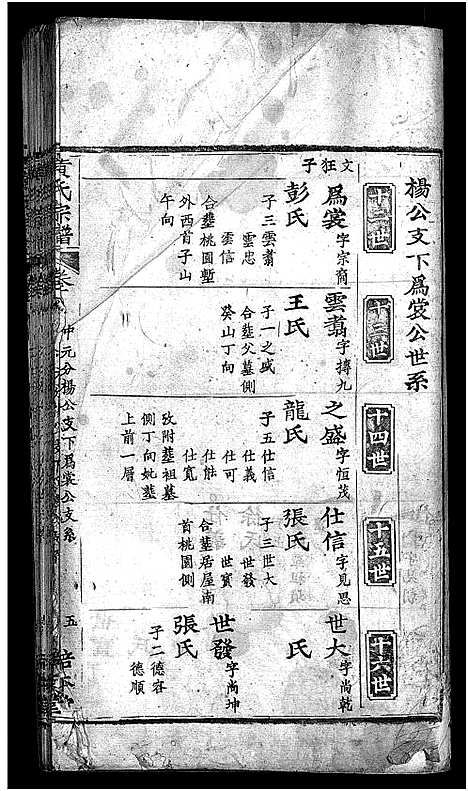 楊公支下爲裳公世系
十二世
十三世
十四世
十五世
十六世
文狂子
爲裳字宗裔
彭氏
子三雲翥
雲忠
雲信
合塟桃園塹
外酉首子山
午向
雲翥字摶九
王氏
子一之盛
合塟父墓側
癸山丁向
之盛字恒茂
龍氏
子五仕信
仕義
仕可
仕能
仕寬
攷附塟祖墓
側丁向妣塟
上前一層
仕信字見思
張氏
子三世大
世發
世寳
合塟居屋南
首桃園側
世大字尚乾
氏
世發字尚坤
張氏
子二德容
德順
黄氏宗譜
卷八
仲元分楊公支下爲裳公支系
五